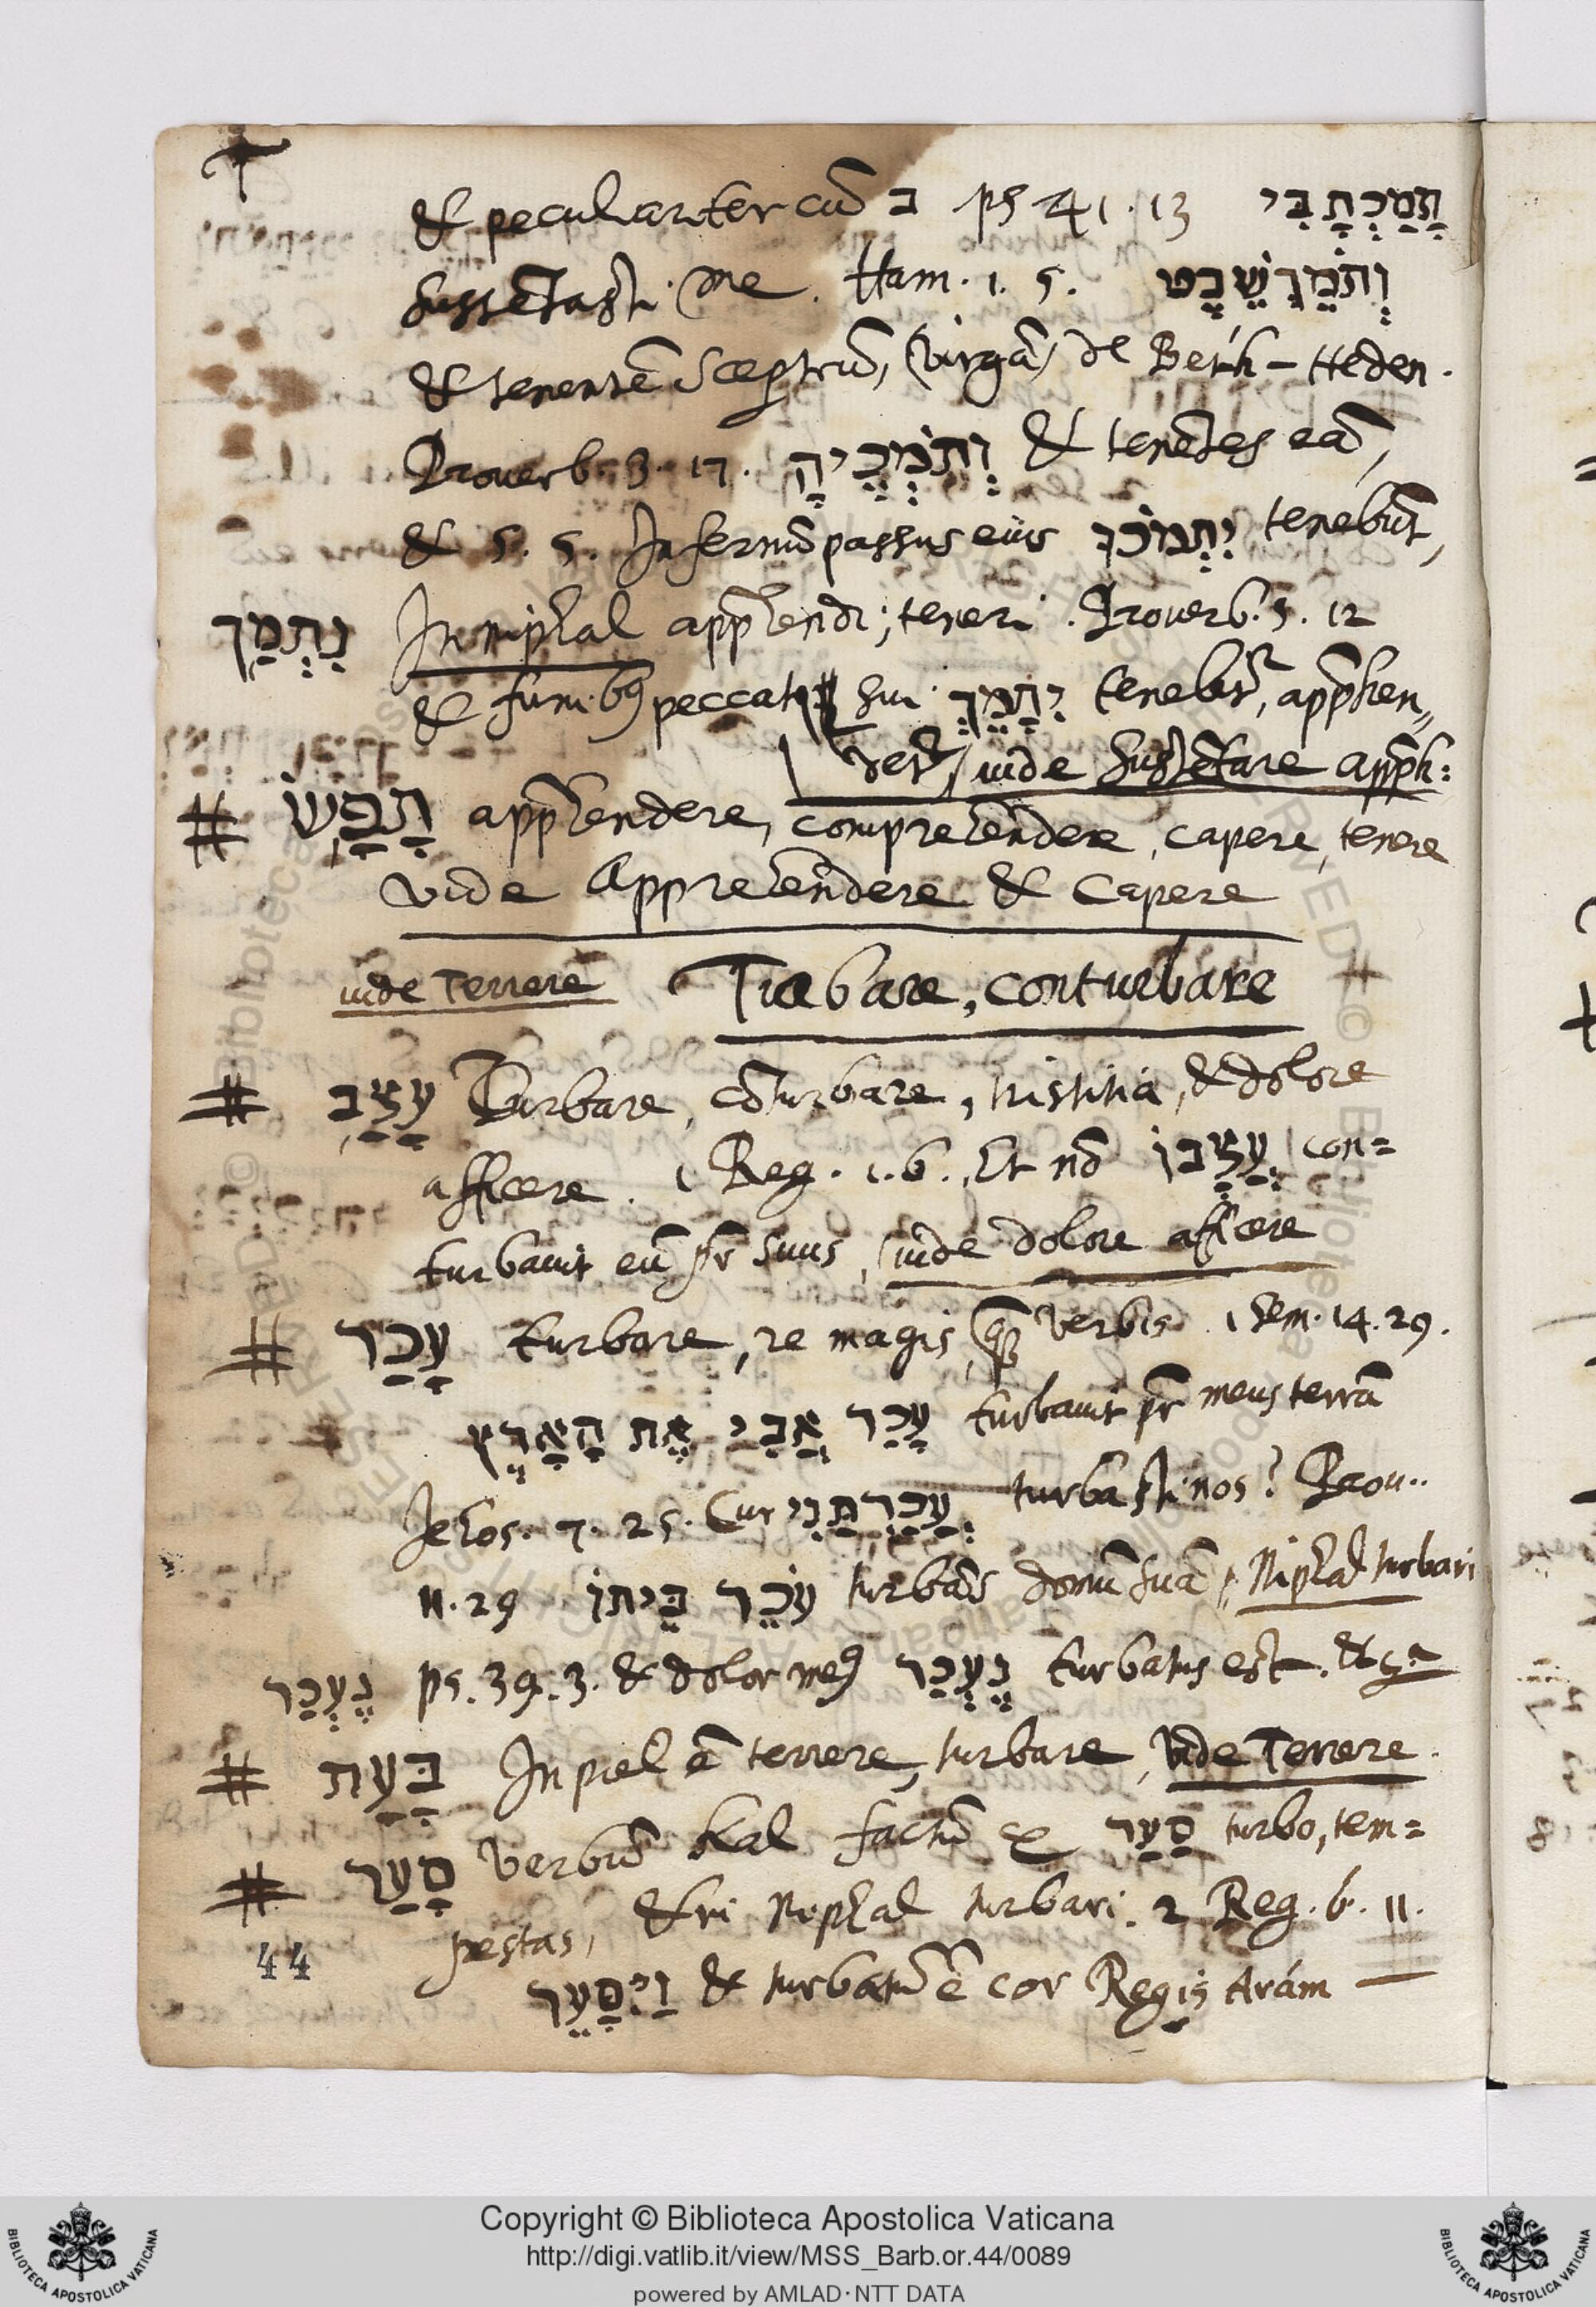 & peculiariter cū ב ps 41. 13 תָמַכְתָּ בִּי
sustētasti me. Ham. 1. 5. וְתֹמֵךְ שֵׁבֶט
& tenentē sceptrū, (virgā) de Beth-Heden.
Prouerb. 3. 17. וְתֹמְכֶיהָ & tenētes eā,
& 5. 5. Infernū passus eius יִתְמֹכוּ tenebūt,
נִתְמַךְ In niphal apphendi, teneri. Prouerb. 5. 12
& funibꝰ peccati sui יִתָּמֵךְ tenebit̃, apphen„
det̃, uide sustētare apph:
# תָּפַשׂ apphendere, comprehendere, capere, tenere
vide Apprehendere & Capere
uide Terrere Turbare, conturbare #
# עָצַב Turbare, cōturbare, tristitia, & dolore
afficere. 1 Reg. 1. 6. Et nō עֲצָבוֹ con=
turbauit eū pr̄ suus, uide dolore afficere
# עָכַר turbare, re magis, quā verbis 1 Sem. 14. 29.
עָכַר אֲבִי אֶת הָאָרֶץ turbauit pr̄ meus terrā
Jehos. 7. 25. Cur עֲכַרְתָּנִי turbasti nos? Prou..
11. 29 עֹכֵר בֵּיתוֹ turbās domū suā, Niphal turbari
נֶעְכַּר ps. 39. 3. & dolor meꝰ נֶעְכַּר turbatus est. &c.ª
# בָּעַת In piel ē terrere, turbare, vide Terrere.
# סָעַר verbū kal factū ex סַעַר turbo, tem=
pestas, & in Niphal turbari. 2 Reg. 6. 11.
44
וַיִּסָּעֵר & turbatū ē cor Regis Arám —
Copyright © Biblioteca Apostolica Vaticana
http://digi.vatlib.it/view/MSS_Barb.or.44/0089
powered by AMLAD·NTT DATA
BIBLIOTECA APOSTOLICA VATICANA
BIBLIOTECA APOSTOLICA VATICANA